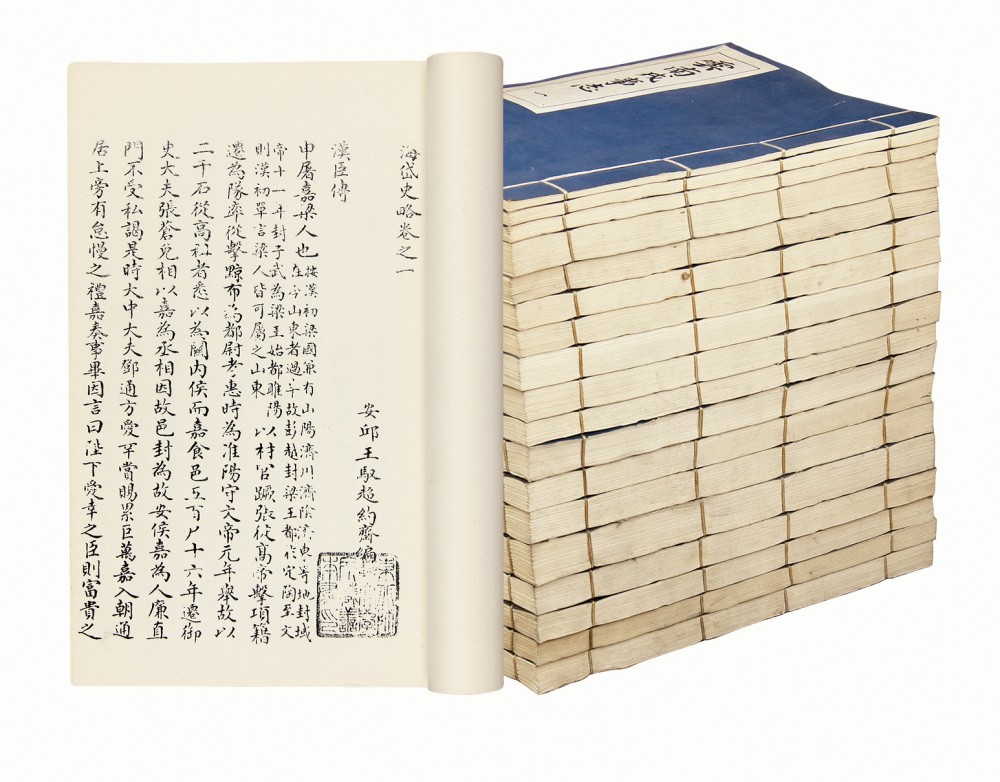 海岱史略卷之一
安邱王馭超約齋編
漢臣傳
申屠嘉梁人也按漢初梁國兼有山陽濟川濟陰濟東等地封域在今山東者過半故彭越封梁王都定陶至文
帝十一年封子武為梁王始都睢陽則漢初單言梁人皆可屬之山東以材官蹶張從高帝擊項籍
遷為隊率從擊黥布為都尉孝惠時為淮陽守文帝元年舉故以
二千石從高祖者悉以為關內侯而嘉食邑五百戶十六年遷御
史大夫張蒼免相以嘉為丞相因故邑封為故安侯嘉為人廉直
門不受私謁是時大中大夫鄧通方愛幸賞賜累巨萬嘉入朝通
居上旁有怠慢之禮嘉奏事畢因言曰陛下愛幸之臣則富貴之
南
一